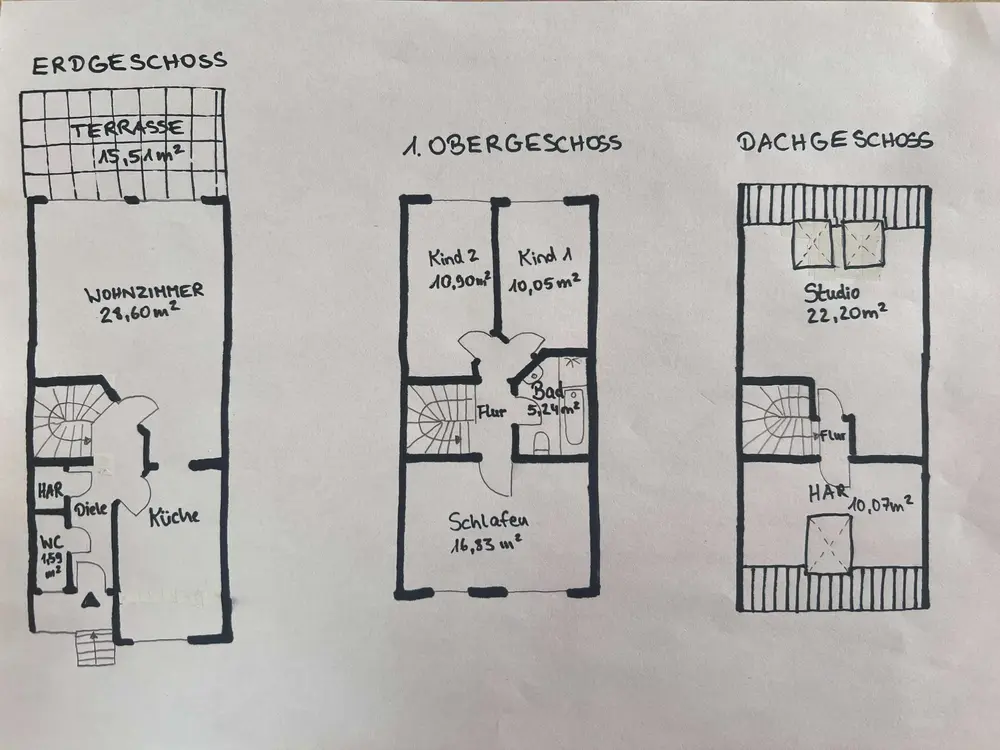 ERDGESCHOSS
TERRASSE
15,51m²
WOHNZIMMER
28,60m²
HAR
Diele
Küche
WC
1,59
m²
1. OBERGESCHOSS
Kind 2
10,90m²
Kind 1
10,05m²
Flur
Bad
5,24m²
Schlafen
16,83 m²
DACHGESCHOSS
Studio
22,20m²
Flur
HAR
10,07m²